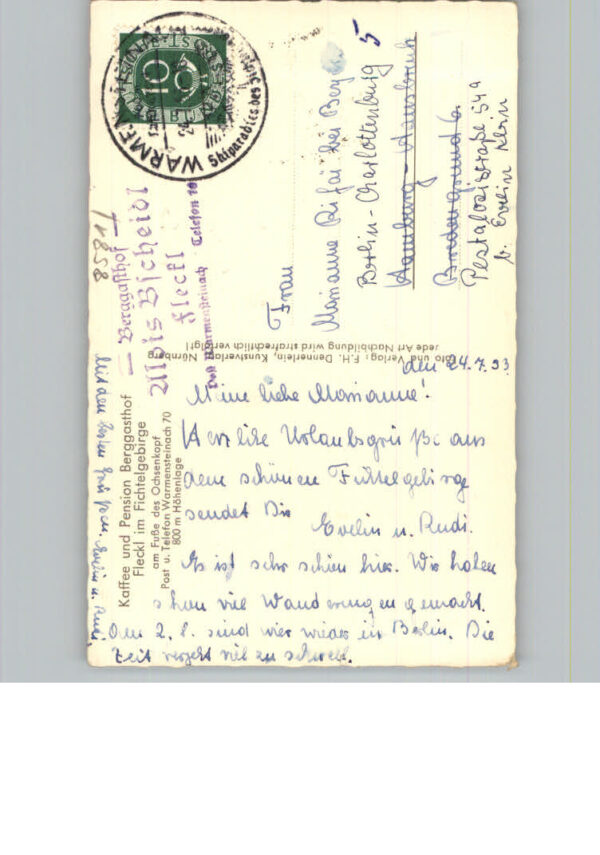 Kaffee und Pension Berggasthof
Fleckl im Fichtelgebirge
am Fuße des Ochsenkopf
Post u. Telefon Warmensteinach 70
800 m Höhenlage
— Berggasthof —
Alois Bscheidl
Fleckl
Post Warmensteinach Telefon 70
T1858
10
WARMEN
Skiparadies des
Foto und Verlag: F.H. Dennerlein, Kunstverlag, Nürnberg
Jede Art Nachbildung wird strafrechtlich verfolgt!
Frau
Marianne
Berlin-Charlottenburg 5
Hamburg
Pestalozzistraße 54a
b. Evelin Klein
den 24.7.53
Meine liebe Marianne!
Herzliche Urlaubsgrüße aus
dem schönen Fichtelgebirge
sendet Dir
Evelin u. Rudi.
Es ist sehr schön hier. Wir haben
schon viel Wanderungen gemacht.
Am 2. 8. sind wir wieder in Berlin. Die
Zeit vergeht viel zu schnell.
Mit den besten Grüßen. Evelin u. Rudi.